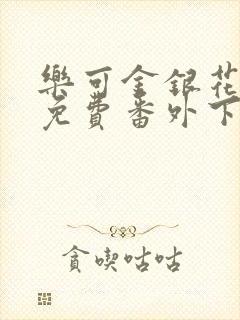 樂可金銀花
免費番外下
貪喫咕咕